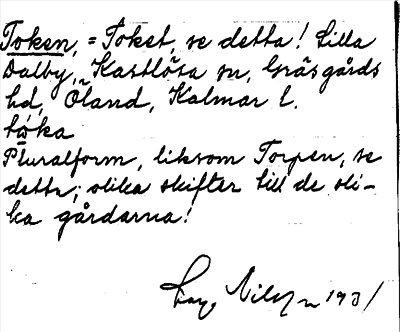 Token, = Toket, se detta! Lilla
Dalby, Kastlösa sn, Gräsgårds
hd, Öland, Kalmar l.
tòka
Pluralform, liksom Torpen, se
detta; olika skifter till de oli-
ka gårdarna!
Nilsson 1931